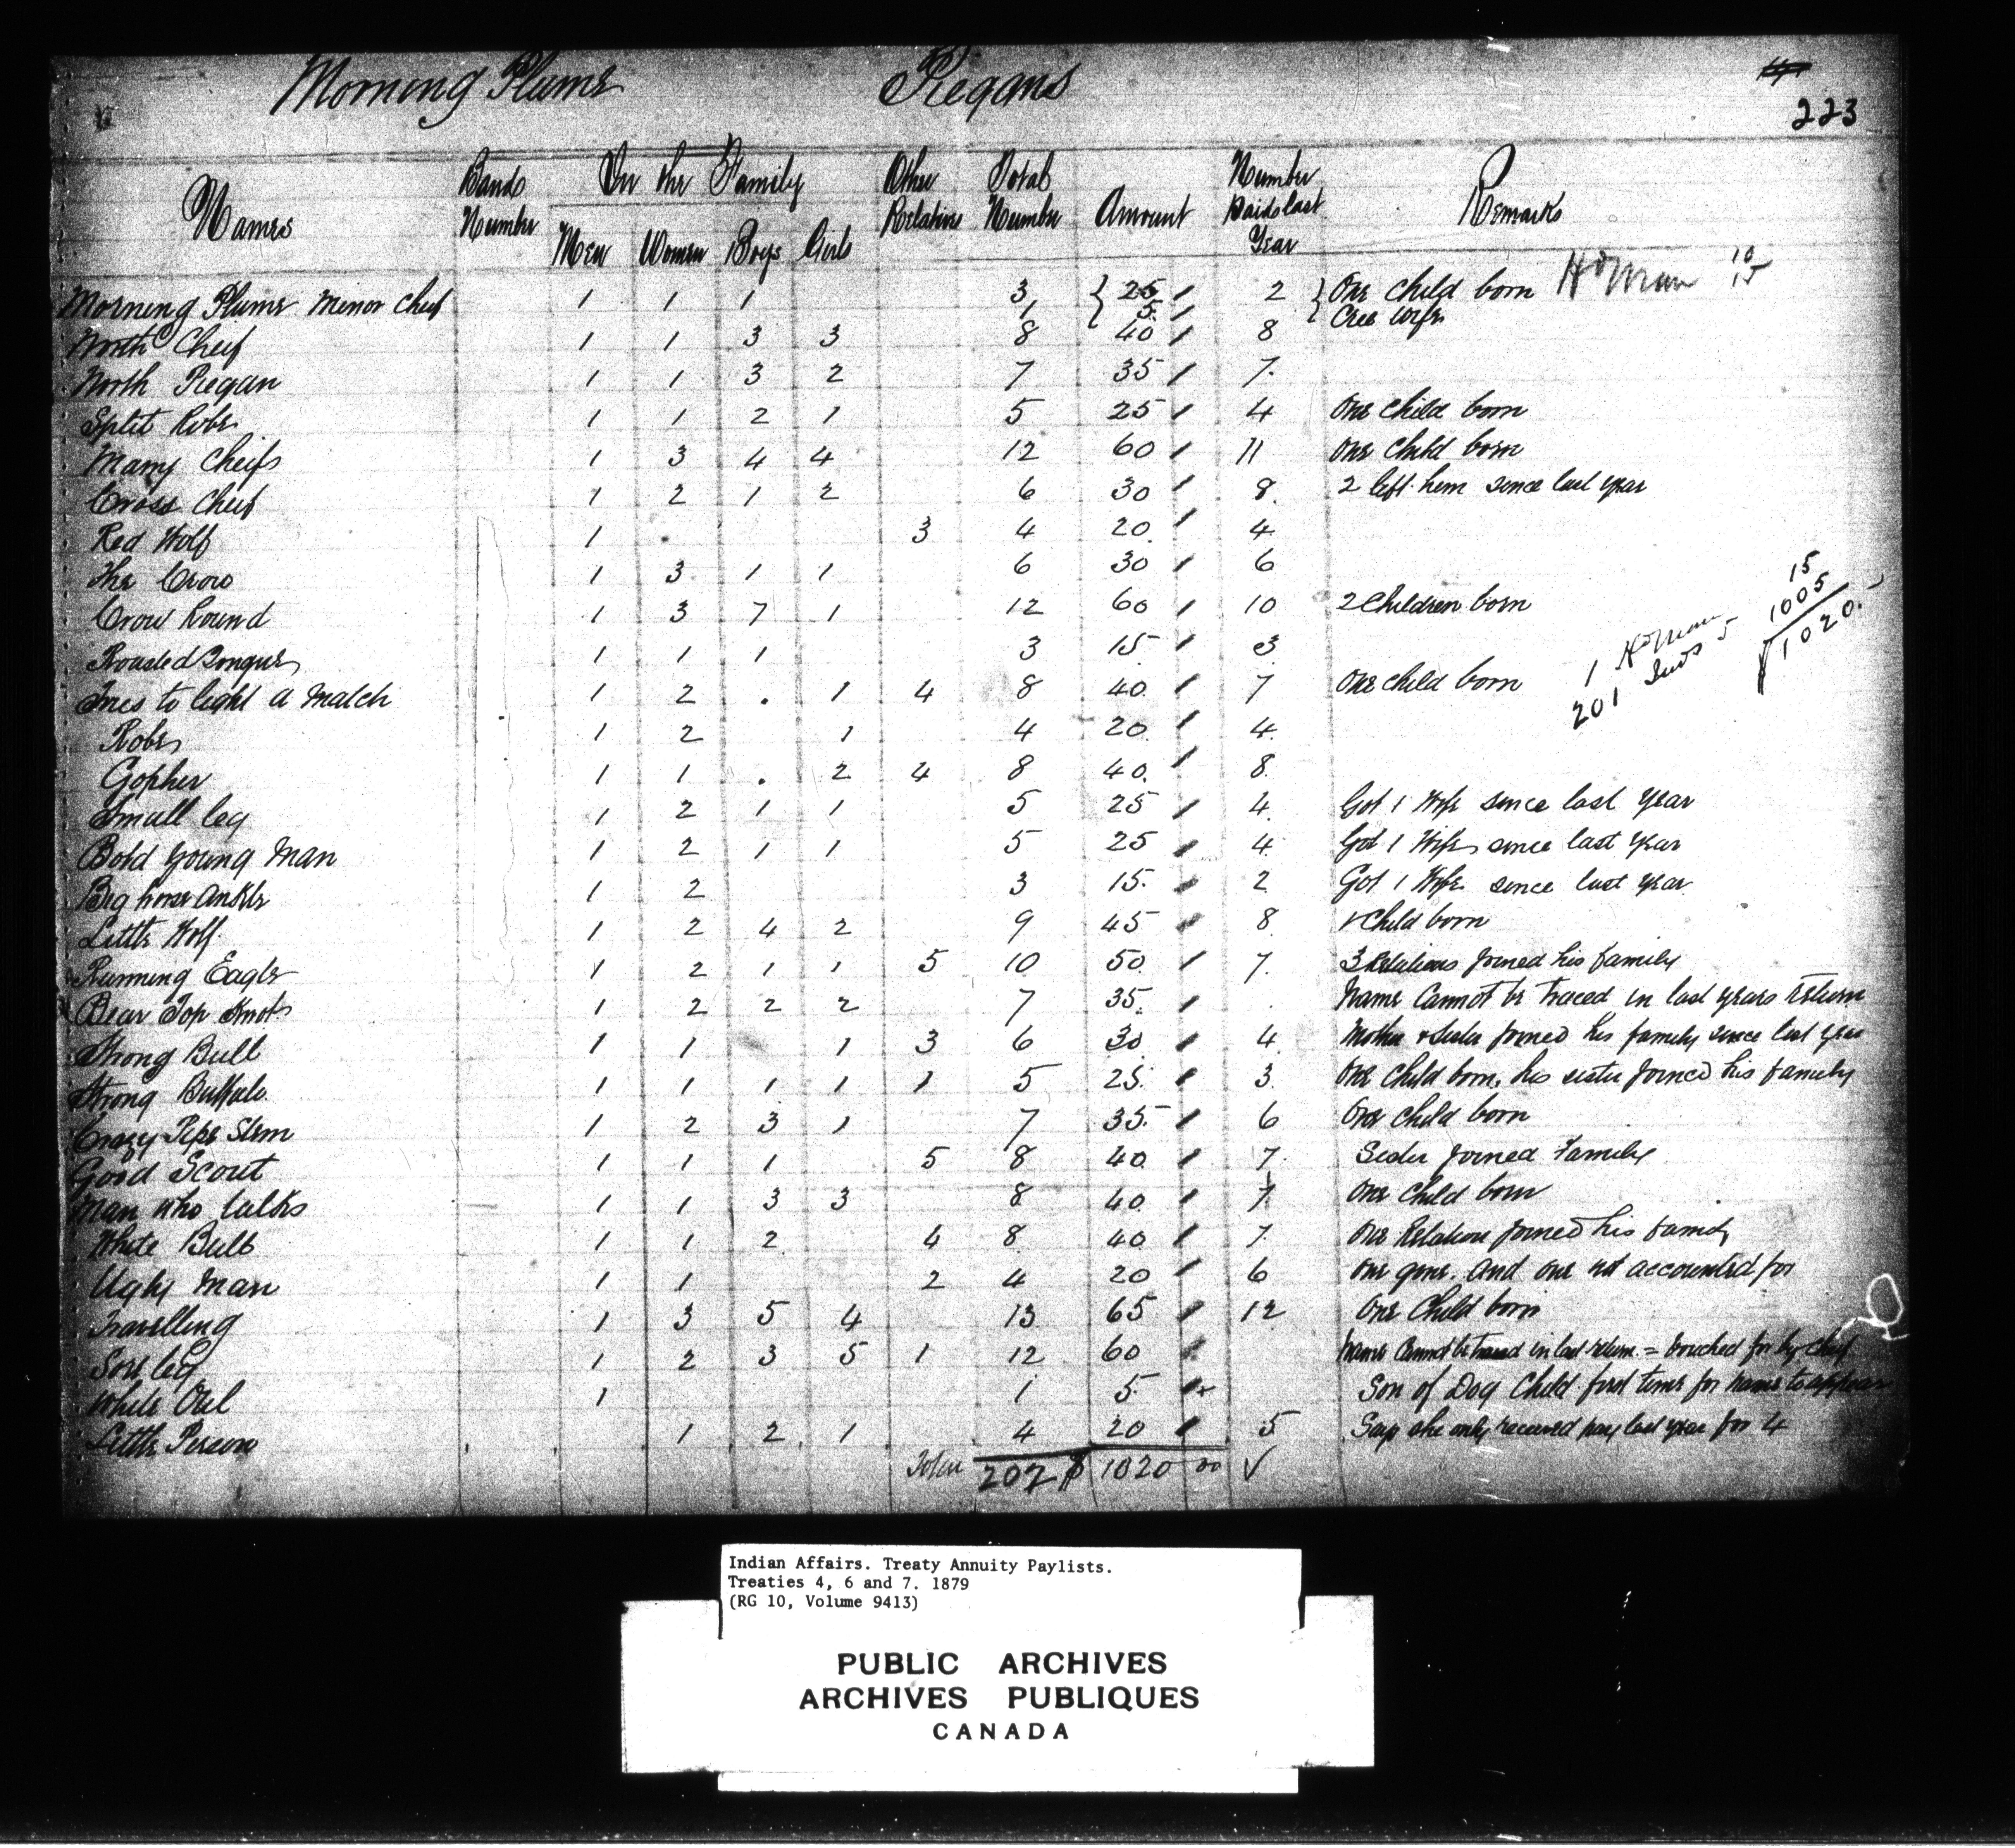 Morning Plume Piegans
223
Names Bands Number In the Family Other Relative Total Number Amount Number Paid last Year Remarks
Men Women Boys Girls
Morning Plume Minor Cheif 1 1 1 3 25 2 One Child born Hdman 10 15
1 5 Cree Wife
North Cheif 1 1 3 3 8 40 8
North Piegan 1 1 3 2 7 35 7
Split Robe 1 1 2 1 5 25 4 One Child born
Many Cheifs 1 3 4 4 12 60 11 One Child born
Cross Cheif 1 2 1 2 6 30 8 2 left him since last year
Red Wolf 1 3 4 20 4
The Crow 1 3 1 1 6 30 6
Crow Round 1 3 7 1 12 60 10 2 Children born
Roasted Tongue 1 1 1 3 15 3
Tries to light a Match 1 2 . 1 4 8 40 7 One child born
Robe 1 2 1 4 20 4
Gopher 1 1 . 2 4 8 40 8
Small leg 1 2 1 1 5 25 4 Got 1 Wife since last year
Bold young Man 1 2 1 1 5 25 4 Got 1 Wife since last year
Big horse ankle 1 2 3 15 2 Got 1 Wife since last year
Little Wolf 1 2 4 2 9 45 8 1 Child born
Running Eagle 1 2 1 1 5 10 50 7 3 Relations joined his family
Bear Top Knot 1 2 2 2 7 35 Name Cannot be traced in last years return
Strong Bull 1 1 1 3 6 30 4 Mother & Sister joined his family since last year
Strong Buffalo 1 1 1 1 1 5 25 3 One child born, his sister joined his family
Crazy Pipe Stem 1 2 3 1 7 35 6 One child born
Good Scout 1 1 1 5 8 40 7 Sister joined Family
Man who talks 1 1 3 3 8 40 7 One child born
White Bull 1 1 2 4 8 40 7 One Relation joined his family
Ugly Man 1 1 2 4 20 6 One gone. And one not accounted for
Travelling 1 3 5 4 13 65 12 One Child born
Sore leg 1 2 3 5 1 12 60 Name Cannot be traced in last return = vouched for by Cheif
White Owl 1 1 5 Son of Dog Child first time for name to appear
Little Person 1 2 1 4 20 5 Says she only received pay last year for 4
Total 202 $ 1020 00 ✓
1 Hdman 15
201 Inds 5 1005
$ 1020.
Indian Affairs. Treaty Annuity Paylists.
Treaties 4, 6 and 7. 1879
(RG 10, Volume 9413)
PUBLIC ARCHIVES
ARCHIVES PUBLIQUES
CANADA